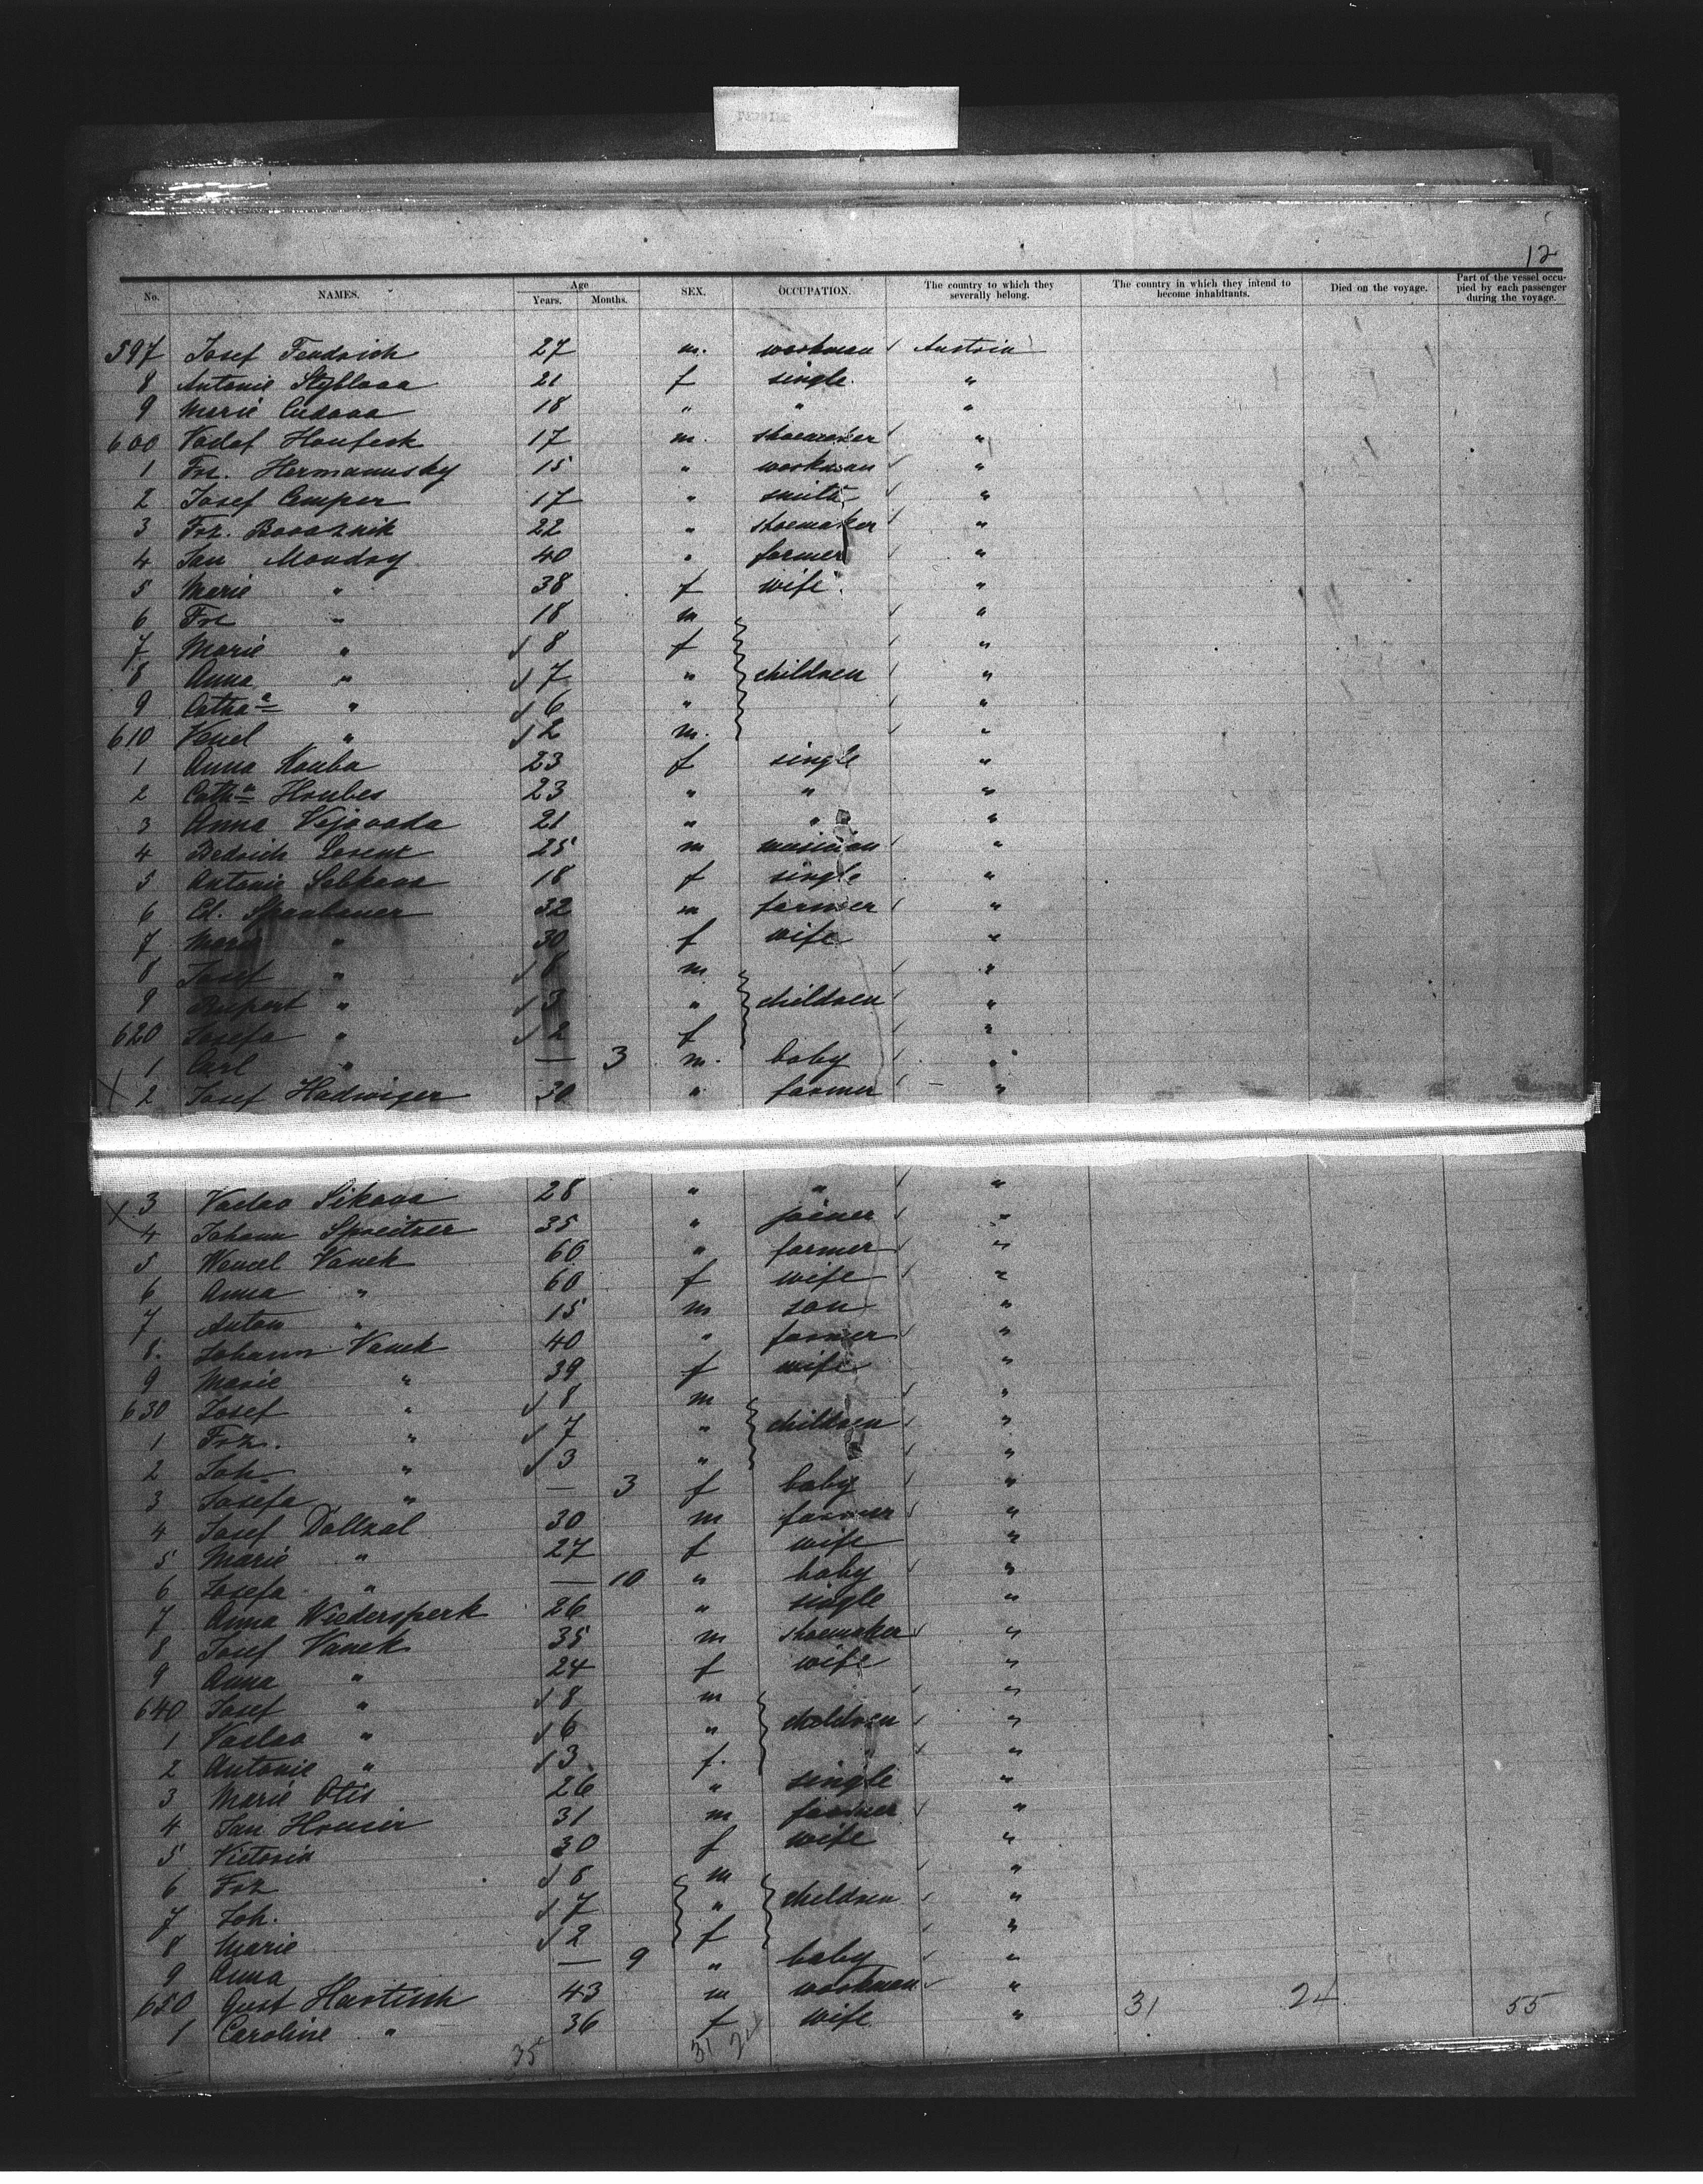 12
No. NAMES. Age Years. Months. SEX. OCCUPATION. The country to which they severally belong. The country in which they intend to become inhabitants. Died on the voyage. Part of the vessel occupied by each passenger during the voyage.
597 Josef Fendrich 27 m. workman Austria
8 Antonie Styblova 21 f single "
9 Marie Cudova 18 " " "
600 17 m. shoemaker "
1 Frz. Hermanusky 15 " workman "
2 Josef Cemper 17 " smith "
3 Frz. 22 " shoemaker "
4 Jan Mondry 40 " farmer "
5 Marie " 38 f wife "
6 Frz " 18 m "
7 Marie " 8 f "
8 Anna " 7 " children "
9 Catha " 6 " "
610 " 2 m. "
1 Anna Kouba 23 f single "
2 Catha Houbes 23 " " "
3 Anna Vejvoda 21 " " "
4 Bedrich Lorenz 25 m musician "
5 Antonie 18 f single "
6 Ed. Spanbauer 32 m farmer "
7 Marie " 30 f wife "
8 Josef " 8 m "
9 Rupert " 3 " children "
620 Josefa " 2 f "
1 Carl " — 3 m. baby "
X 2 Josef Hadwiger 30 " farmer "
X 3 Vaclav Sikava 28 " " "
4 Johann Spreitzer 35 " joiner "
5 Wencel Vanek 60 " farmer "
6 Anna " 60 f wife "
7 Anton " 15 m son "
8. Johann Vanek 40 " farmer "
9 Marie " 39 f wife "
630 Josef " 8 m "
1 Frz. " 7 " children "
2 Joh. " 3 " "
3 Josefa " — 3 f baby "
4 Josef Dollzal 30 m farmer "
5 Marie " 27 f wife "
6 Josefa " — 10 " baby "
7 Anna Wiedersperk 26 " single "
8 Josef Vanek 35 m shoemaker "
9 Anna " 24 f wife "
640 Josef " 8 m "
1 Vaclav " 6 " children "
2 Antonie " 3 f. "
3 Marie Otis 26 " single "
4 Jan 31 m farmer "
5 Victoria 30 f wife "
6 Frz 8 m "
7 Joh. 7 " children "
8 Marie 2 f "
9 Anna — 9 " baby "
650 Gust Hartisch 43 m workman "
1 Caroline " 36 f wife "
31 24 55
35 31 24